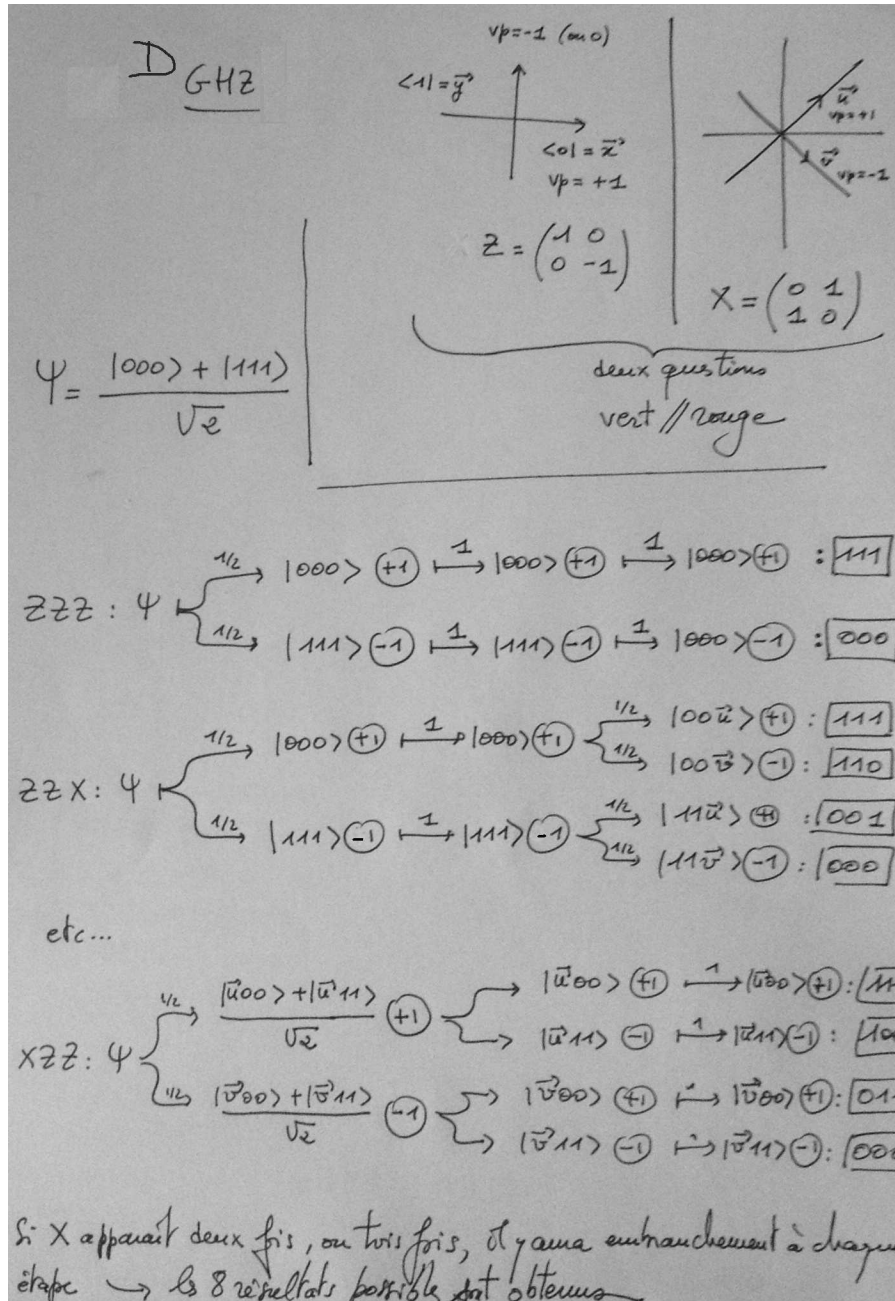 D GHZ
vp=-1 (ou 0)
<1| = y⃗
<0| = x⃗
vp = +1
Z = (1 0
0 -1)
u⃗
vp=+1
v⃗
vp=-1
X = (0 1
1 0)
Ψ = |000> + |111>
√2
deux questions
vert // rouge
1/2 |000> (+1) 1 |000> (+1) 1 |000> (+1) : 111
ZZZ : Ψ
1/2 |111> (-1) 1 |111> (-1) 1 |000> (-1) : 000
1/2 |000> (+1) 1 |000> (+1) 1/2 |00u⃗> (+1) : 111
1/2 |00v⃗> (-1) : 110
ZZX : Ψ
1/2 |111> (-1) 1 |111> (-1) 1/2 |11u⃗> (+1) : 001
1/2 |11v⃗> (-1) : 000
etc...
1/2 |u⃗00> + |u⃗11> (+1) |u⃗00> (+1) 1 |u⃗00> (+1) : 11
√2 |u⃗11> (-1) 1 |u⃗11> (-1) : 10
XZZ : Ψ
1/2 |v⃗00> + |v⃗11> (-1) |v⃗00> (+1) |v⃗00> (+1) : 01
√2 |v⃗11> (-1) |v⃗11> (-1) : 000
Si X apparait deux fois, ou trois fois, il y aura embranchement à chaque
étape → les 8 résultats possible sont obtenus